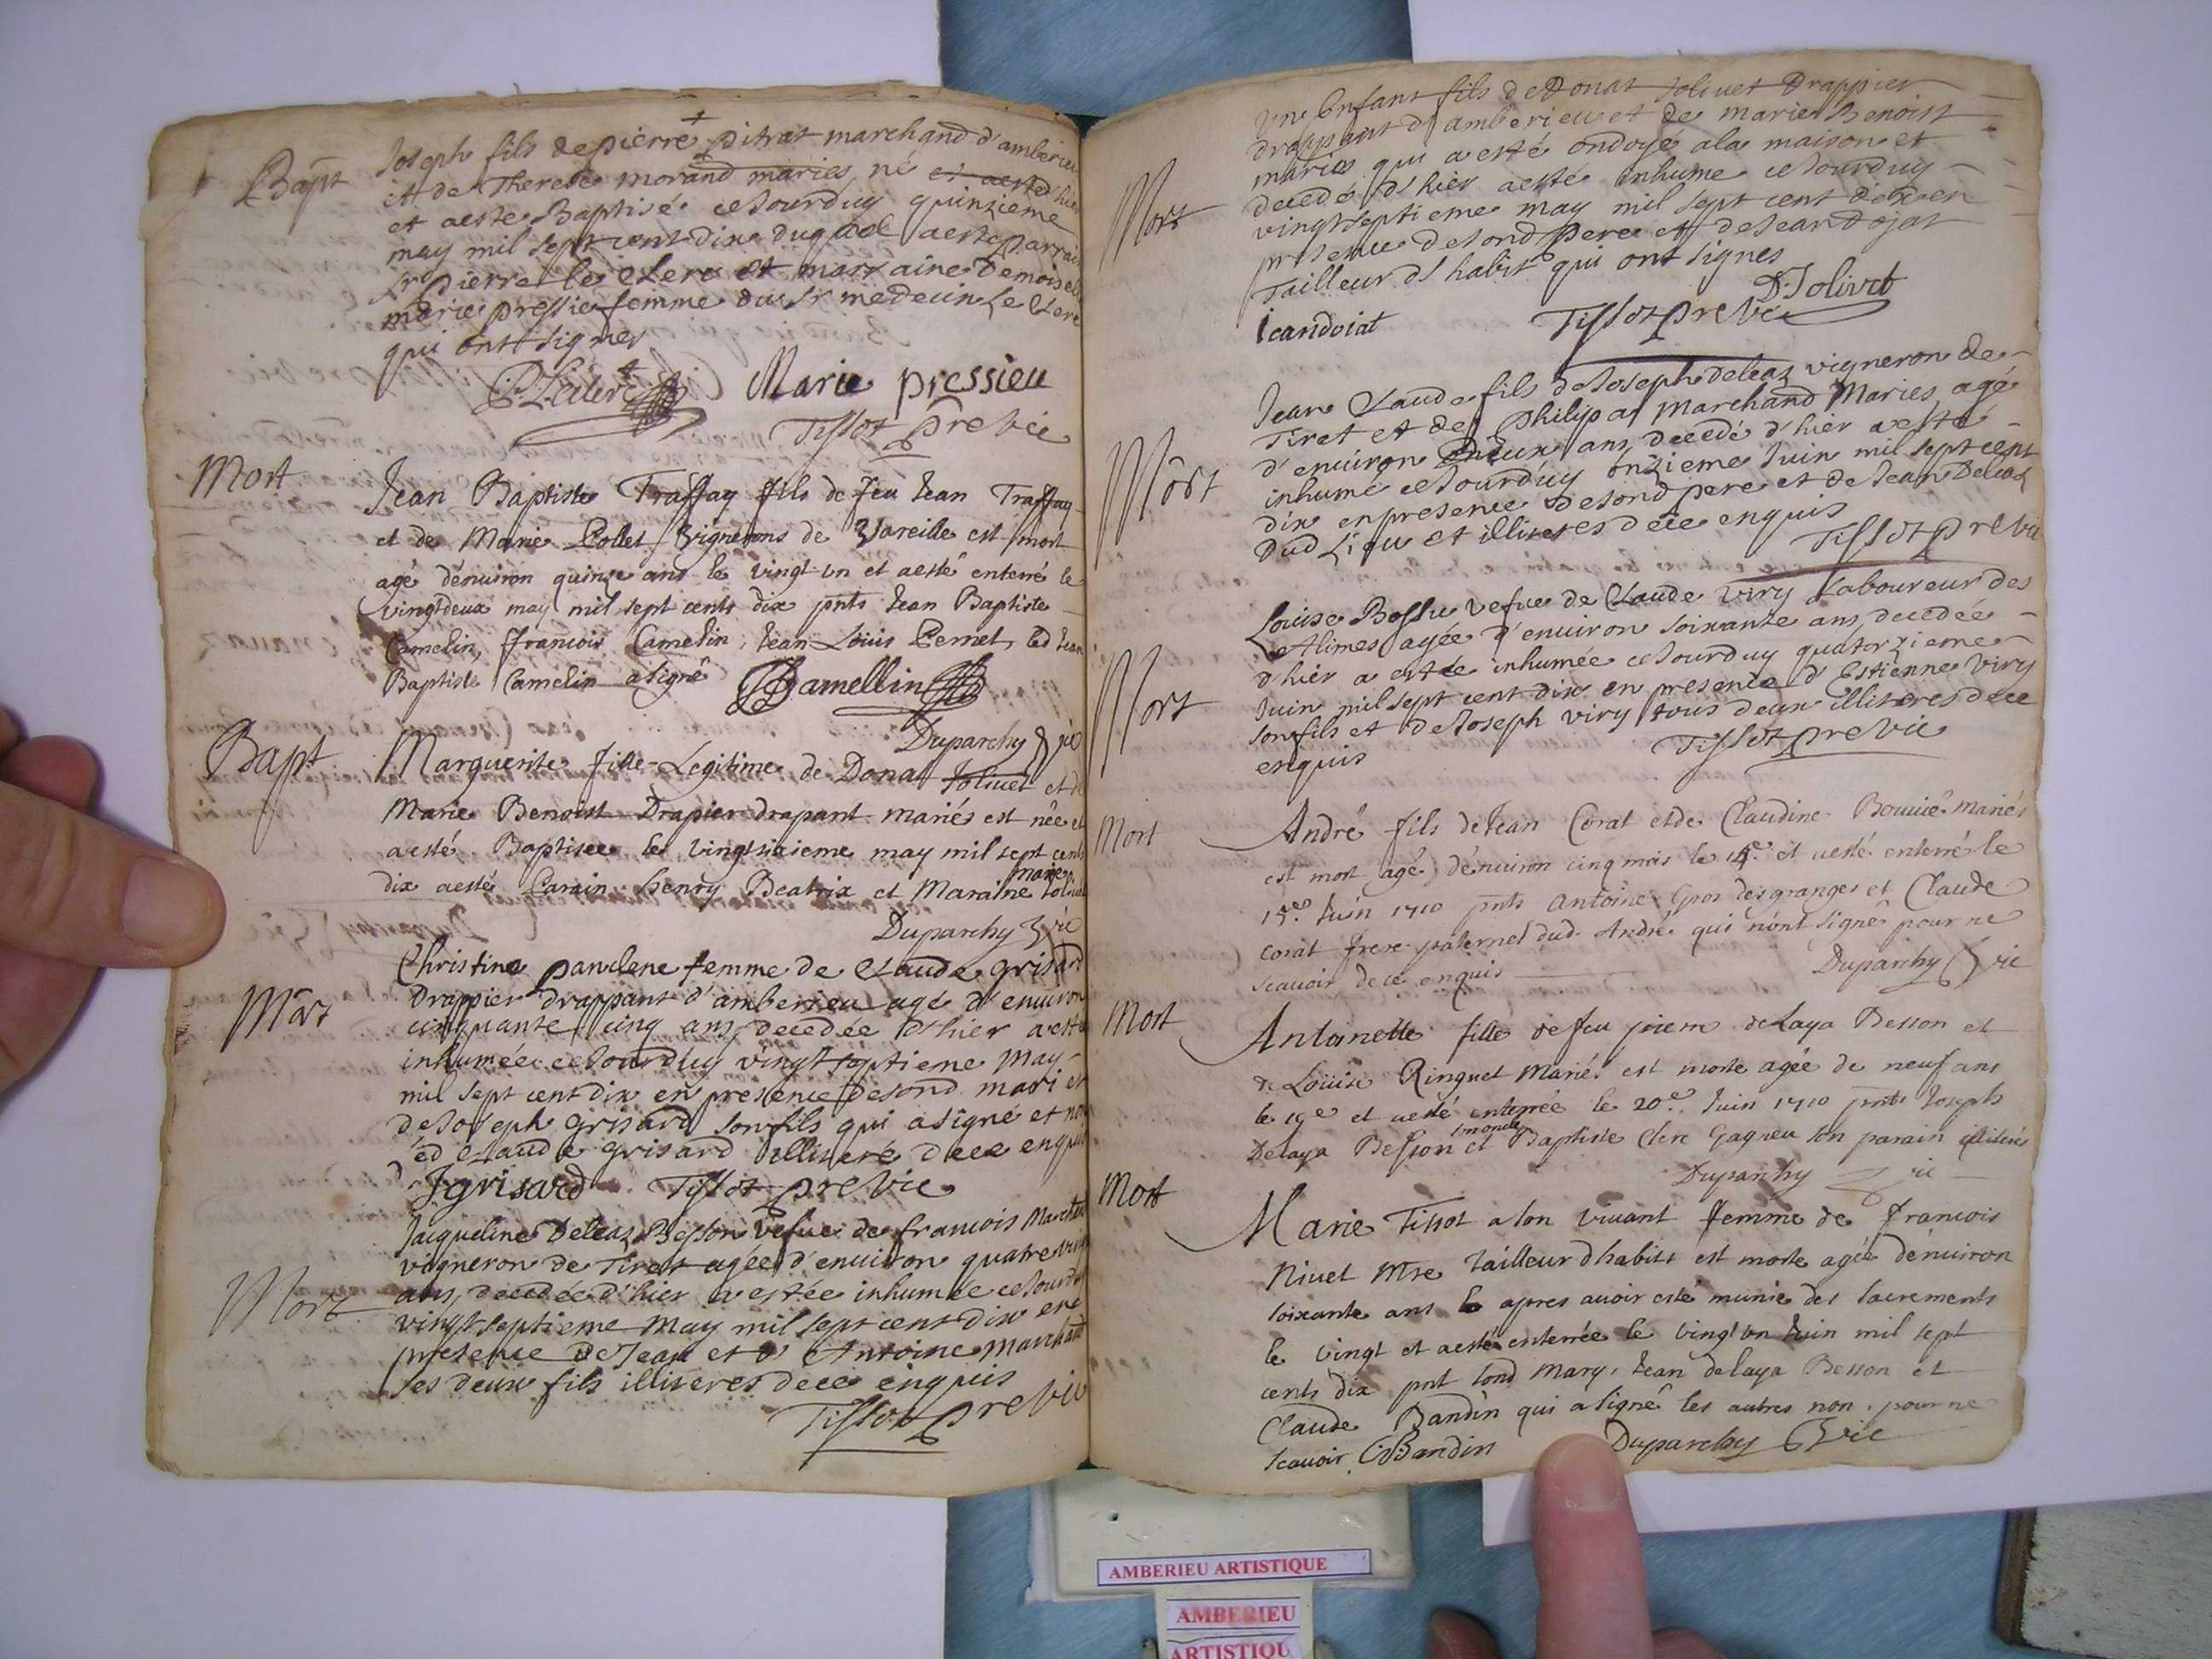 Bapt
Joseph fils de pierre pitrat marchand d'amberieu
et de Therese morand maries, né et aesté d'hier
et aeste Baptisé ceJourduy quinzieme
may mil sept cent dix duquel aeste parrain
Sr pierre le Clerc et marraine Demoiselle
marie pressie femme du Sr medecin Le Clerc
qui ont signes
P. Leclerc Marie pressieu
Tissot pre vic
Mort
Jean Baptiste Traffay fils de feu Jean Traffay
et de Marie Pollet Vignerons de Vareille est mort
agé dénuiron quinze ans le vingt un et aesté enterré le
vingtdeux may mil sept cents dix pnts Jean Baptiste
Camelin, francois Camelin, Jean Loüis Pernet, led Jean
Baptiste Camelin asigné JBamellin
Duparchy vic
Bapt
Marguerite fille Legitime de Donat Joliuet et de
Marie Benoist Drapier drapant mariés est née et
aesté Baptisée le vingtsixieme may mil sept cents
dix aesté Parain henry Beatrix et Maraine marie Joliuet
Duparchy vic
Mort
Christine panclene femme de Claude grisard
Drappier drappant d'amberieu agé d'enuiron
cinquante cinq ans, decedée d'hier aesté
inhumée ceJourduy vingtseptieme May
mil sept cent dix en presence desond mari et
deJoseph grisard sonfils qui asigné et non
led Claude grisard illiteré dece enquis
Jgrisard Tissot pre vic
Mort
Jacqueline Deleaz Besson vefue de francois Marchand
vigneron de Tiret agée d'enuiron quatre vingt
ans, decedée d'hier aestée inhumée ceJourduy
vingtseptieme May mil sept cent dix en
presence DeJean et d' Antoine Marchand
ses deux fils illiteres dece enquis
Tissot pre vic
Mort
Vn Enfant fils deDonat Joliuet Drappier
drappant d'amberieu et de marie Benoist
maries qui a esté ondoyé ala maison et
decedé d'hier aesté inhume ceJourduy
vingtseptieme may mil sept cent dix en
presence desond pere et deJean Dojat
Tailleur d'habit qui ont signes
D. Jolivet
Jeandoiat Tissot pre vic
Mort
Jean Claude fils deJoseph deleaz vigneron de
Tiret et de philipa Marchand Maries, agé
d'enuiron deux ans, decedé d'hier aesté
inhumé ceJourduy onzieme Juin mil sept cent
dix enpresence desond pere et deJean Deleaz
dud Lieu et illiteres dece enquis
Tissot pre vic
Mort
Louise Bossu vefue de Claude viry Laboureur des
Alimes agée d'enuiron soixante ans, decedée
d'hier a estée inhumée ceJourduy quatorzieme
Juin mil sept cent dix en presence d'Estienne viry
sonfils et deJoseph viry tous deux illiteres dece
enquis Tissot pre vic
Mort
André fils deJean Corat et de Claudine Bouuié mariés
est mort agé dénuiron cinq mois le 14e. et aesté enterré le
15e. Juin 1710 pnts Antoine Gros des granges et Claude
corat frere paternel dud. André qui nónt signé pour ne
scauoir dece enquis Duparchy vic
Mort
Antoinette fille defeu pierre deLaya Besson et
de Loüise Ringuet Marié. est morte agée de neuf ans
le 19e et aesté enterrée le 20e. Juin 1710 pnts Joseph
Delaya Besson son oncle et Baptiste Clerc Gagneu son parain illiterés
Duparchy vic
Mort
Marie Tissot a son viuant femme de francois
Niuet Mre tailleur dhabits est morte agée dénuiron
soixante ans apres auoir esté munie des sacrements
le vingt et aesté enterrée le vingt un Juin mil sept
cents dix pnt sond Mary, Jean delaya Besson et
Claude Bandin qui asigné les autres non. pour ne
scauoir CBandin Duparchy vic
AMBERIEU ARTISTIQUE
AMBERIEU
ARTISTIQU